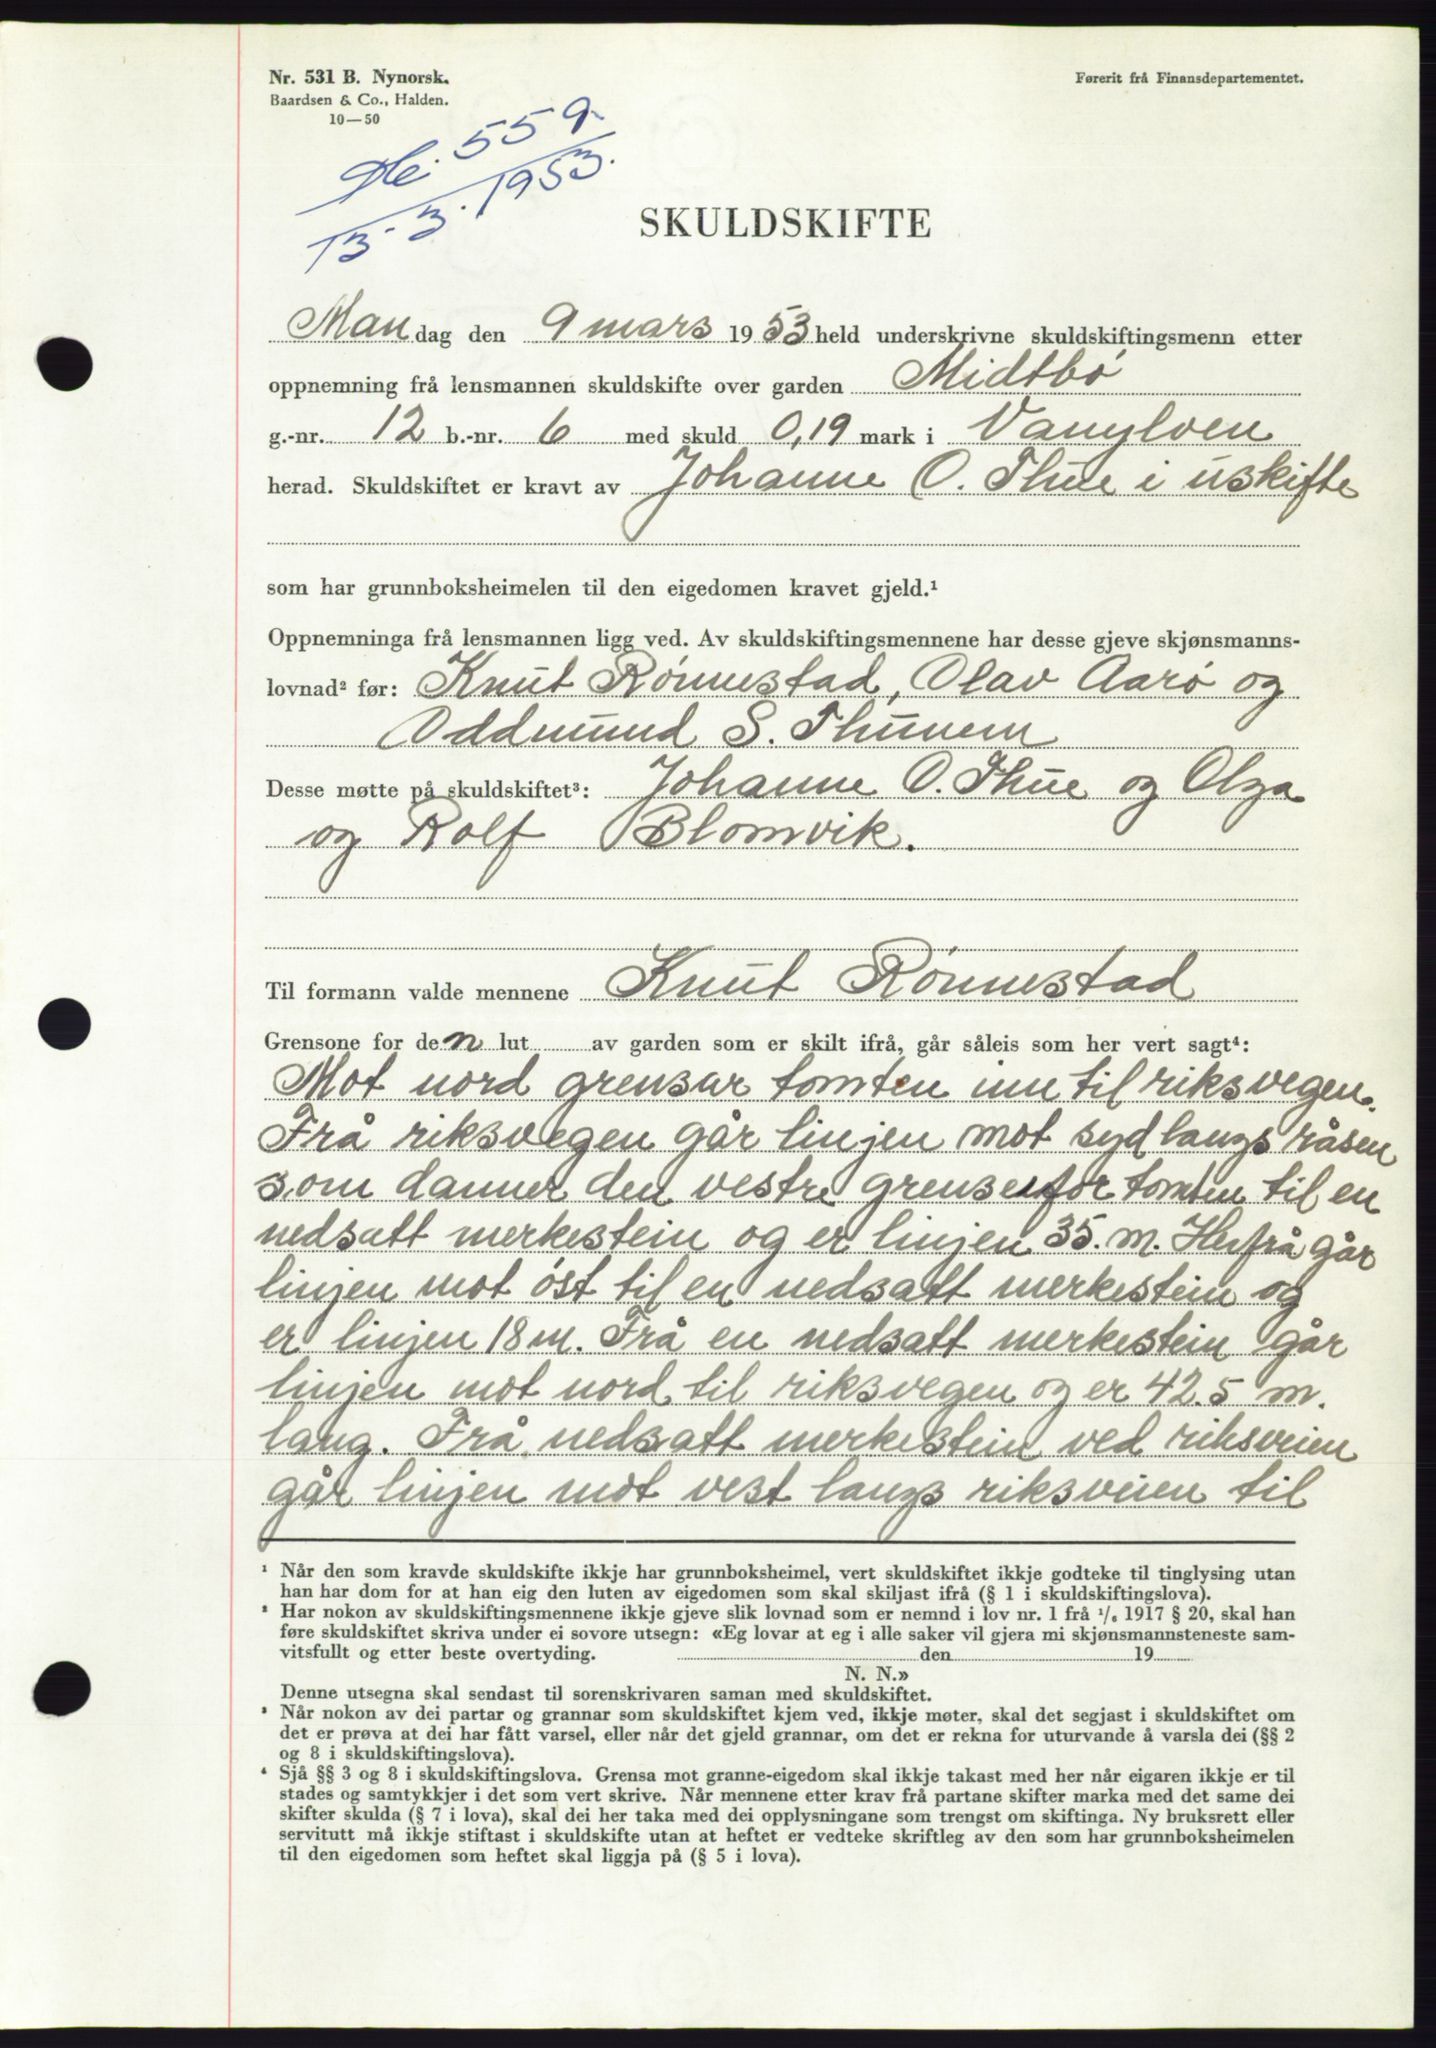 Nr. 531 B. Nynorsk.
Baardsen & Co., Halden.
10—50
Førerit frå Finansdepartementet.
559
13.3.1953.
SKULDSKIFTE
Man dag den 9 mars 1953 held underskrivne skuldskiftingsmenn etter
oppnemning frå lensmannen skuldskifte over garden Midtbö
g.-nr. 12 b.-nr. 6 med skuld 0,19 mark i Vanylven
herad. Skuldskiftet er kravt av Johanne O. Thue i uskifte
som har grunnboksheimelen til den eigedomen kravet gjeld.¹
Oppnemninga frå lensmannen ligg ved. Av skuldskiftingsmennene har desse gjeve skjønsmanns-
lovnad² før: Knut Rönnestad, Olav Aarö og
Oddmund S. Thunem
Desse møtte på skuldskiftet³: Johanne O. Thue og Olga
og Rolf Blomvik.
Til formann valde mennene Knut Rönnestad
Grensone for den lut av garden som er skilt ifrå, går såleis som her vert sagt⁴:
Mot nord grensar tomten inn til riksvegen.
Frå riksvegen går linjen mot syd langs råsen
som danner den vestre grense for tomten til en
nedsatt merkestein og er linjen 35. m. Herfrå går
linjen mot öst til en nedsatt merkestein og
er linjen 18 m. Frå en nedsatt merkestein går
linjen mot nord til riksvegen og er 42.5 m.
lang. Frå nedsatt merkestein ved riksveien
går linjen mot vest langs riksveien til
¹ Når den som kravde skuldskifte ikkje har grunnboksheimel, vert skuldskiftet ikkje godteke til tinglysing utan
han har dom for at han eig den luten av eigedomen som skal skiljast ifrå (§ 1 i skuldskiftingslova).
² Har nokon av skuldskiftingsmennene ikkje gjeve slik lovnad som er nemnd i lov nr. 1 frå 1/6 1917 § 20, skal han
føre skuldskiftet skriva under ei sovore utsegn: «Eg lovar at eg i alle saker vil gjera mi skjønsmannsteneste sam-
vitsfullt og etter beste overtyding. den 19
N. N.»
Denne utsegna skal sendast til sorenskrivaren saman med skuldskiftet.
³ Når nokon av dei partar og grannar som skuldskiftet kjem ved, ikkje møter, skal det segjast i skuldskiftet om
det er prøva at dei har fått varsel, eller når det gjeld grannar, om det er rekna for uturvande å varsla dei (§§ 2
og 8 i skuldskiftingslova).
⁴ Sjå §§ 3 og 8 i skuldskiftingslova. Grensa mot granne-eigedom skal ikkje takast med her når eigaren ikkje er til
stades og samtykkjer i det som vert skrive. Når mennene etter krav frå partane skifter marka med det same dei
skifter skulda (§ 7 i lova), skal dei her taka med dei opplysningane som trengst om skiftinga. Ny bruksrett eller
servitutt må ikkje stiftast i skuldskifte utan at heftet er vedteke skriftleg av den som har grunnboksheimelen
til den eigedomen som heftet skal liggja på (§ 5 i lova).